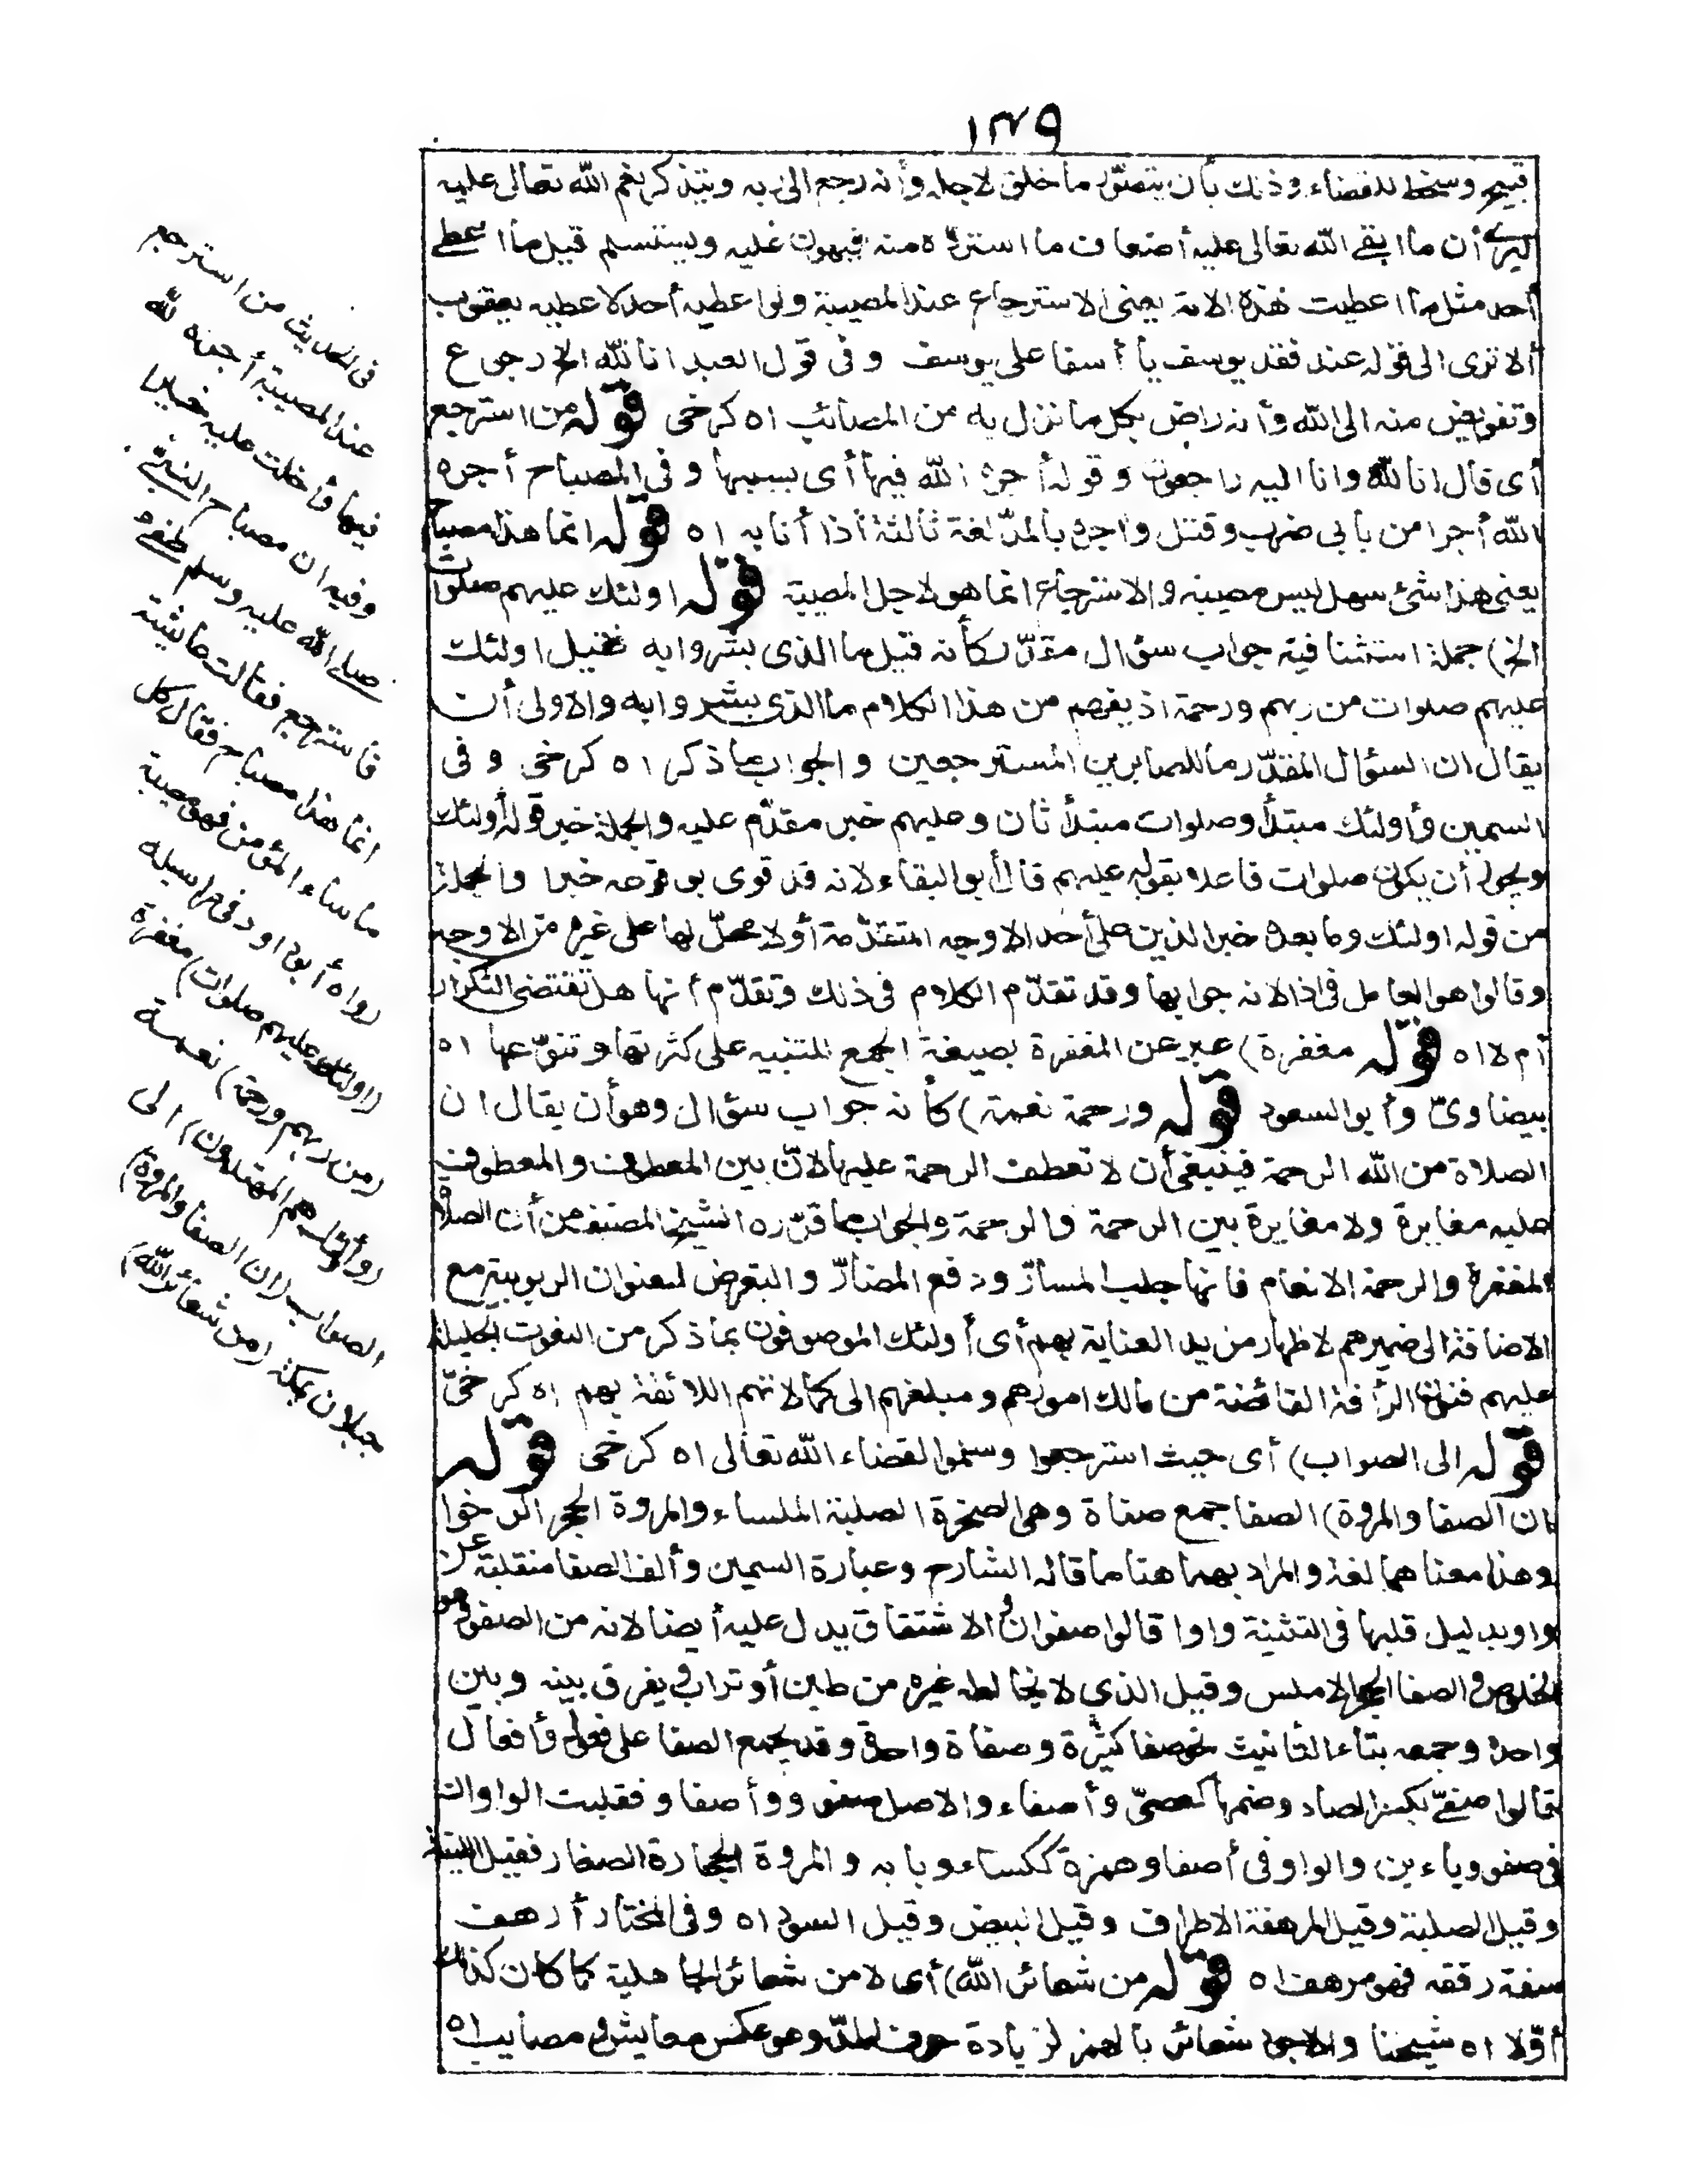 ١٣٩
قبيح وسخط للقضاء وذلك بأن يتصوّر ما خلق لاجله وأنه رجع الى ربه ويتذكر نعم الله تعالى عليه
ليرى أن ما ابقى الله تعالى عليه أضعاف ما استردّه منه فيهون عليه ويستسلم قيل ما اعطى
أحد مثل ما اعطيت هذه الامة يعنى الاسترجاع عند المصيبة ولو اعطيه أحد لاعطيه يعقوب
ألا ترى الى قوله عند فقد يوسف يا أسفا على يوسف وفى قول العبد انا لله الخ رجوع
وتفويض منه الى الله وأنه راض بكل ما نزل به من المصائب اه كرخى قوله من استرجع
أى قال انا لله وانا اليه راجعون وقوله أجره الله فيها أى بسببها وفى المصباح أجره
الله أجرا من بابى ضرب وقتل وآجره بالمدّ لغة ثالثة اذا أثابه اه قوله انما هذا مصباح
يعنى هذا شئ سهل ليس مصيبة والاسترجاع انما هو لاجل المصيبة قوله اولئك عليهم صلوات
الخ) جملة استئنافية جواب سؤال مقدّر كأنه قيل ما الذى بشروا به فقيل اولئك
عليهم صلوات من ربهم ورحمة اذ يفهم من هذا الكلام ما الذى بشروا به والاولى أن
يقال ان السؤال المقدّر ما للصابرين المسترجعين والجواب ما ذكر اه كرخى وفى
السمين وأولئك مبتدأ وصلوات مبتدأ ثان وعليهم خبر مقدّم عليه والجملة خبر قوله أولئك
ويجوز أن يكون صلوات فاعلا بقوله عليهم قال أبو البقاء لانه قد قوى بوقوعه خبرا والجملة
من قوله اولئك وما بعده خبر الذين على أحد الاوجه المتقدّمة أولا محلّ لها على غيره من الاوجه
وقالوا هو العامل فى اذا لانه جوابها وقد تقدّم الكلام فى ذلك وتقدّم أنها هل تقتضى التكرار
أم لا اه قوله مغفرة) عبر عن المغفرة بصيغة الجمع للتنبيه على كثرتها وتنوّعها اه
بيضاوىّ وأبو السعود قوله ورحمة نعمة) كأنه جواب سؤال وهو أن يقال ان
الصلاة من الله الرحمة فينبغى أن لا تعطف الرحمة عليها لانّ بين المعطوف والمعطوف
عليه مغايرة ولا مغايرة بين الرحمة والرحمة والجواب ما قرّره الشيخ المصنف من أن الصلاة
المغفرة والرحمة الانعام فانها جلب المسارّ ودفع المضارّ والتعرض لعنوان الربوبية مع
الاضافة الى ضميرهم لاظهار مزيد العناية بهم أى أولئك الموصوفون بما ذكر من النعوت الجليلة
عليهم فنون الرأفة الفائضة من مالك امورهم ومبلغهم الى كمالاتهم اللائقة بهم اه كرخىّ
قوله الى الصواب) أى حيث استرجعوا وسلموا لقضاء الله تعالى اه كرخى قوله
ان الصفا والمروة) الصفا جمع صفاة وهى الصخرة الصلبة الملساء والمروة الحجر الرخوا
وهذا معناهما لغة والمراد بهما هنا ما قاله الشارح وعبارة السمين وألف الصفا منقلبة عن
واو بدليل قلبها فى التثنية واوا قالوا صفوان والاشتقاق يدل عليه أيضا لانه من الصفو وهو
الخلوص والصفا الحجر الاملس وقيل الذي لا يخالطه غيره من طين أو تراب ويفرق بينه وبين
واحده وجمعه بتاء التأنيث نحو صفا كثيرة وصفاة واحدة وقد يجمع الصفا على فعول وأفعال
قالوا صفىّ بكسر الصاد وضمها كعصىّ وأصفاء والاصل صفوو وأصفاو فقلبت الواوان
فى صفوو ياءين والواو فى أصفاو همزة ككساء وبابه والمروة الحجارة الصغار فقيل اللينة
وقيل الصلبة وقيل المرهفة الاطراف وقيل البيض وقيل السود اه وفى المختار أرهف
سيفه رققه فهو مرهف اه قوله من شعائر الله) أى لا من شعائر الجاهلية كما كان كذلك
أوّلا اه شيخنا والاجود شعائر بالهمز لزيادة حرف المدّ وهو عكس معايش ومصايب اه
فى الحديث من استرجع
عند المصيبة أجره الله
فيها وأخلف عليه خيرا
وفيه ان مصباح النبىّ
صلى الله عليه وسلم طفئ
فاسترجع فقالت عائشة
انما هذا مصباح فقال كل
ما ساء المؤمن فهو مصيبة
رواه أبو داود فى مراسيله
(اولئك عليهم صلوات) مغفرة
(من ربهم ورحمة) نعمة
(وأولئك هم المهتدون) الى
الصواب (ان الصفا والمروة)
جبلان بمكة (من شعائر الله)